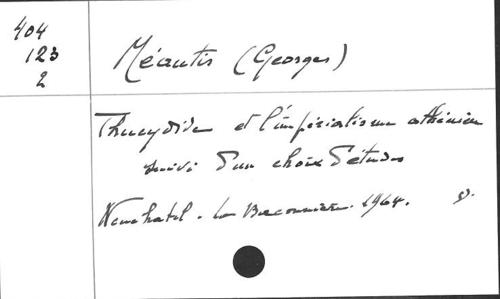 404
123
2
Méautis (Georges)
Thucydide et l'impérialisme athénien
suivi d'un choix d'études
Neuchatel. La Baconnière. 1964.